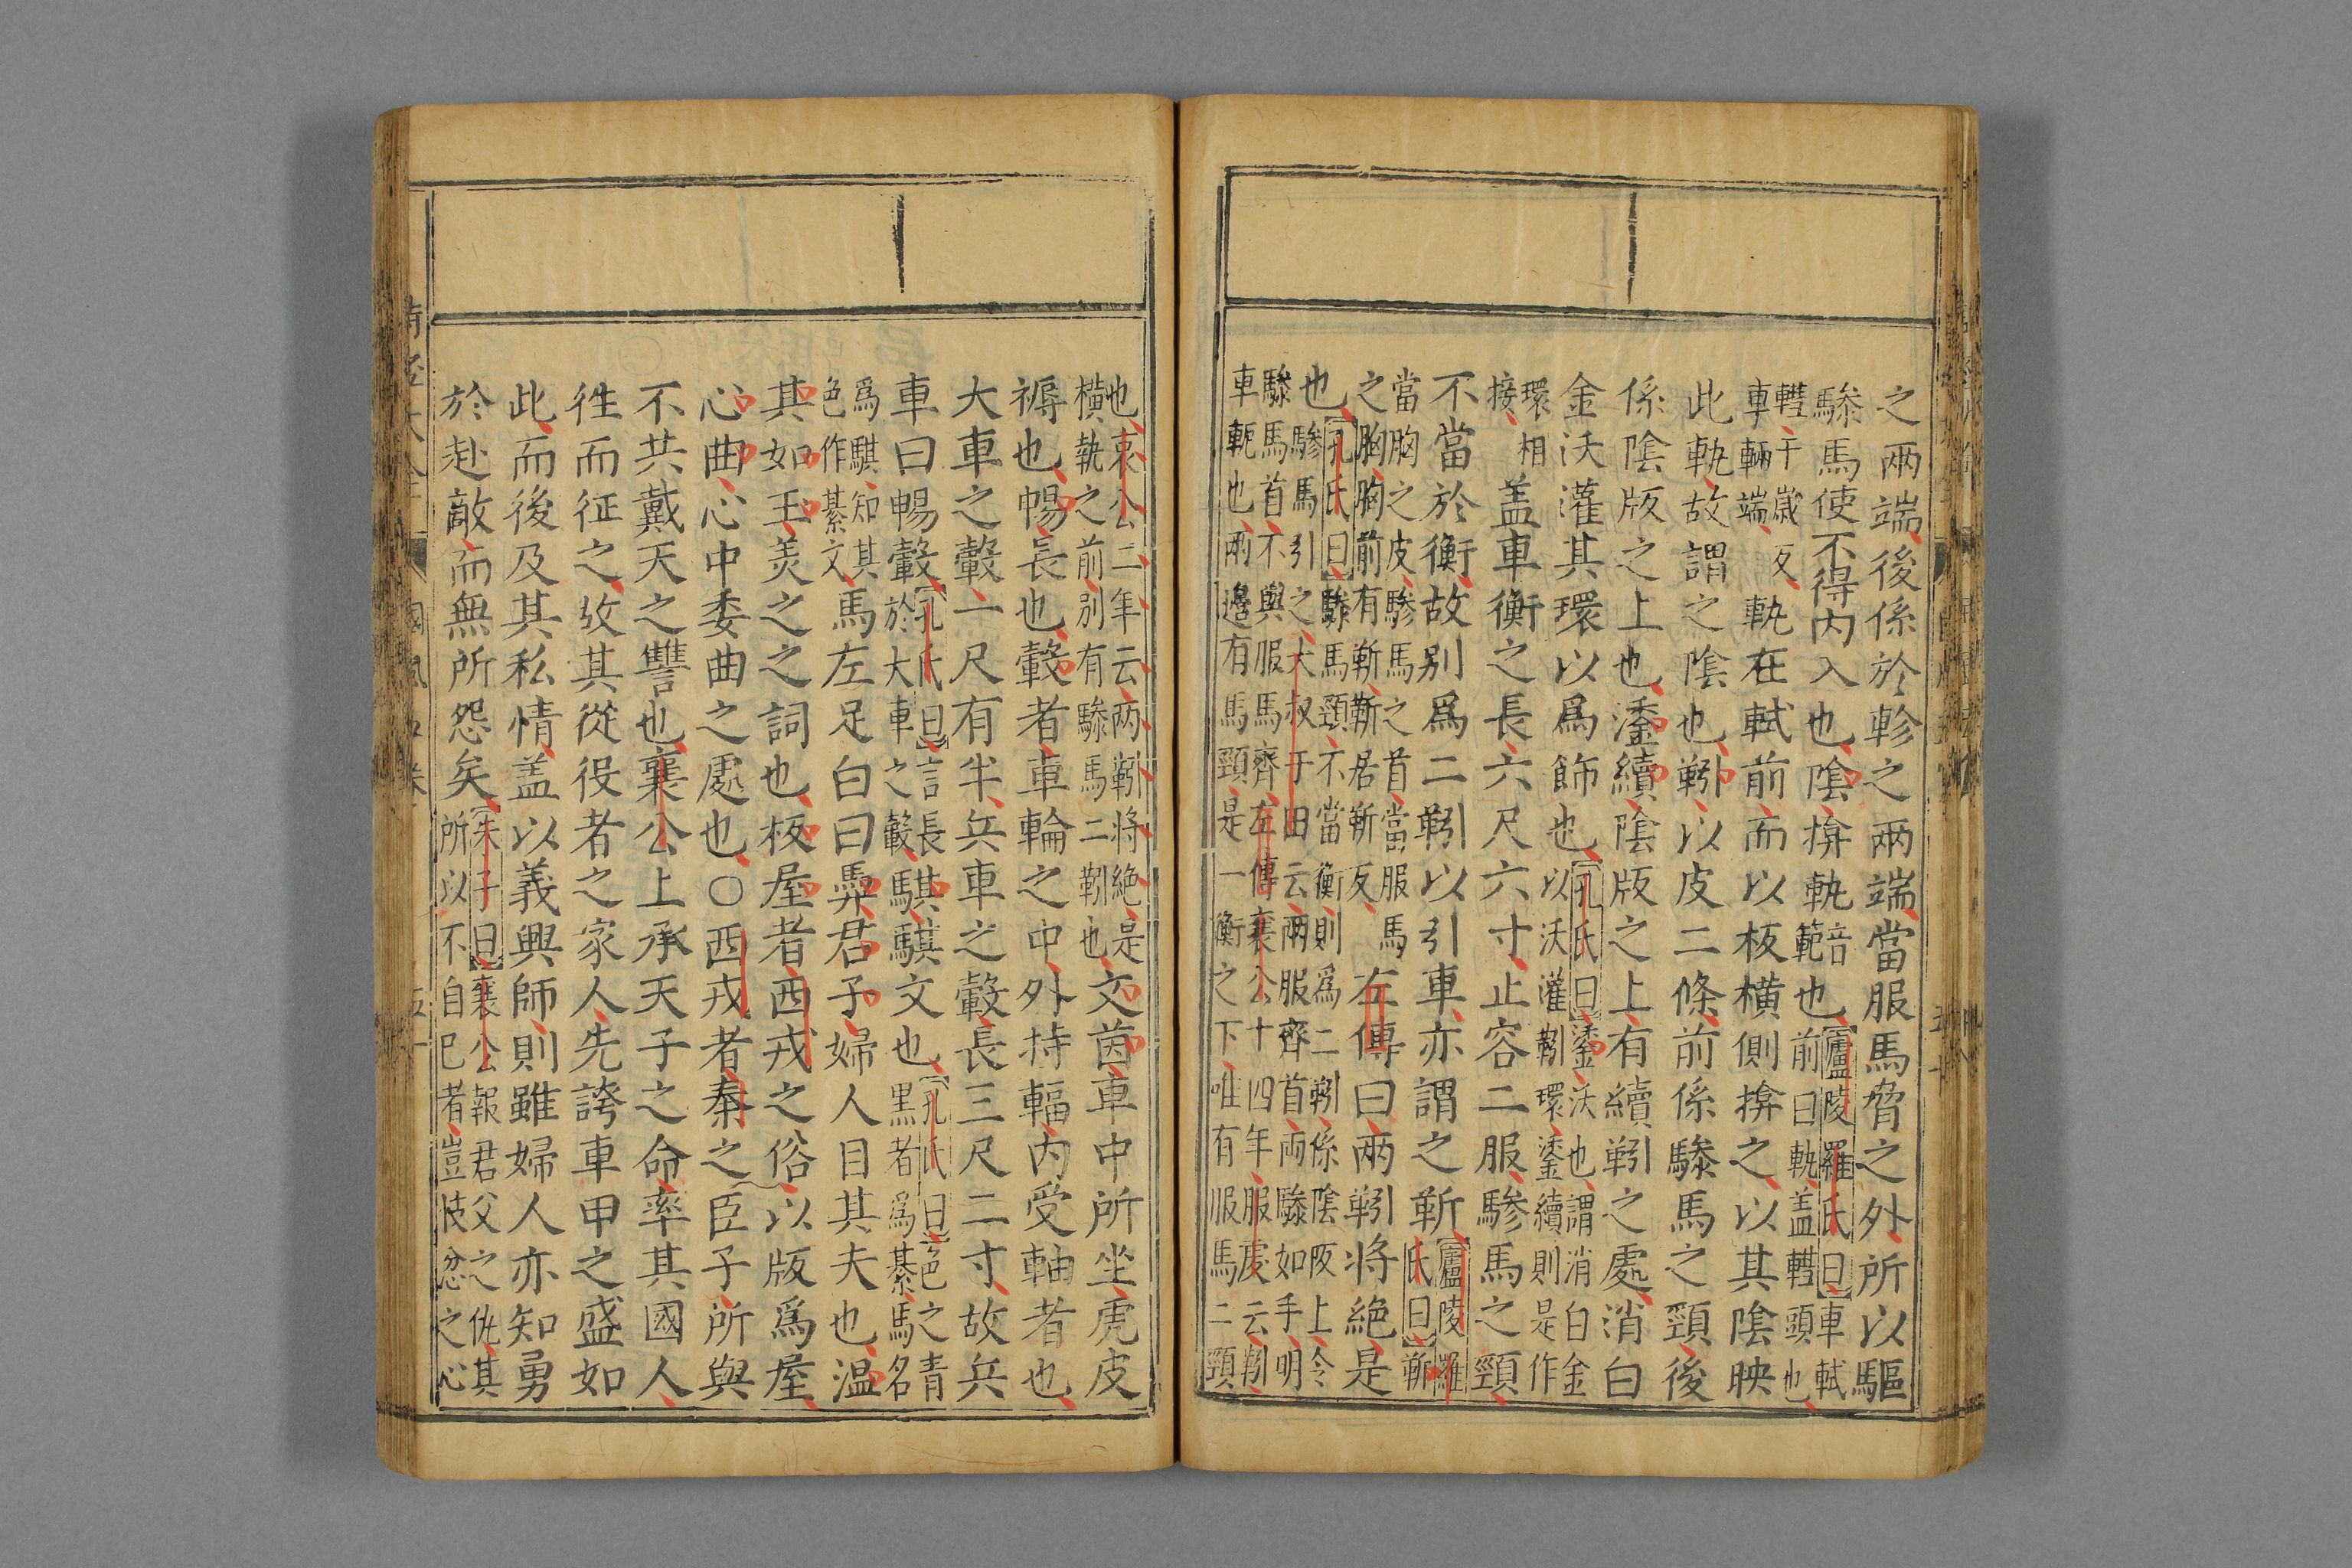 之兩端後係於軫之兩端當服馬脅之外所以驅
驂馬使不得内入也陰揜軓音範也廬陵羅氏曰車軾前曰軓盖轊頭也
轊于歲反車輛端軓在軾前而以板横側揜之以其陰映
此軓故謂之陰也靷以皮二條前係驂馬之頸後
係陰版之上也鋈續陰版之上有續靷之處消白
金沃灌其環以爲飾也孔氏曰鋈沃也謂消白金以沃灌靷環鋈續則是作
環相接盖車衡之長六尺六寸止容二服驂馬之頸
不當於衡故别爲二靷以引車亦謂之靳廬陵羅氏曰靳
當胸之皮驂馬之首當服馬之胸胸前有靳靳居靳反左傳曰兩靷将絶是
也孔氏曰驂馬頸不當衡則爲二靷係陰版上令驂馬引之大叔于田云兩服齊首兩驂如手明
驂馬首不與服馬齊左傳襄公十四年服虔云靷車軶也兩邉有馬頸是一衡之下唯有服馬二頸
也哀公二年云两靷将絶是横軓之前别有驂馬二靷也文茵車中所坐虎皮
褥也暢長也轂者車輪之中外持輻内受軸者也
大車之轂一尺有半兵車之轂長三尺二寸故兵
車曰暢轂孔氏曰言長於大車之轂騏騏文也孔氏曰色之青黒者爲綦馬名
爲騏知其色作綦文馬左足白曰馵君子婦人目其夫也温
其如玉羙之之詞也板屋者西戎之俗以版爲屋
心曲心中委曲之處也○西戎者秦之臣子所與
不共戴天之讐也襄公上承天子之命率其國人
徃而征之故其從役者之家人先誇車甲之盛如
此而後及其私情盖以義興師則雖婦人亦知勇
於赴敵而無所怨矣朱子曰襄公報君父之仇其所以不自已者豈忮忿之心